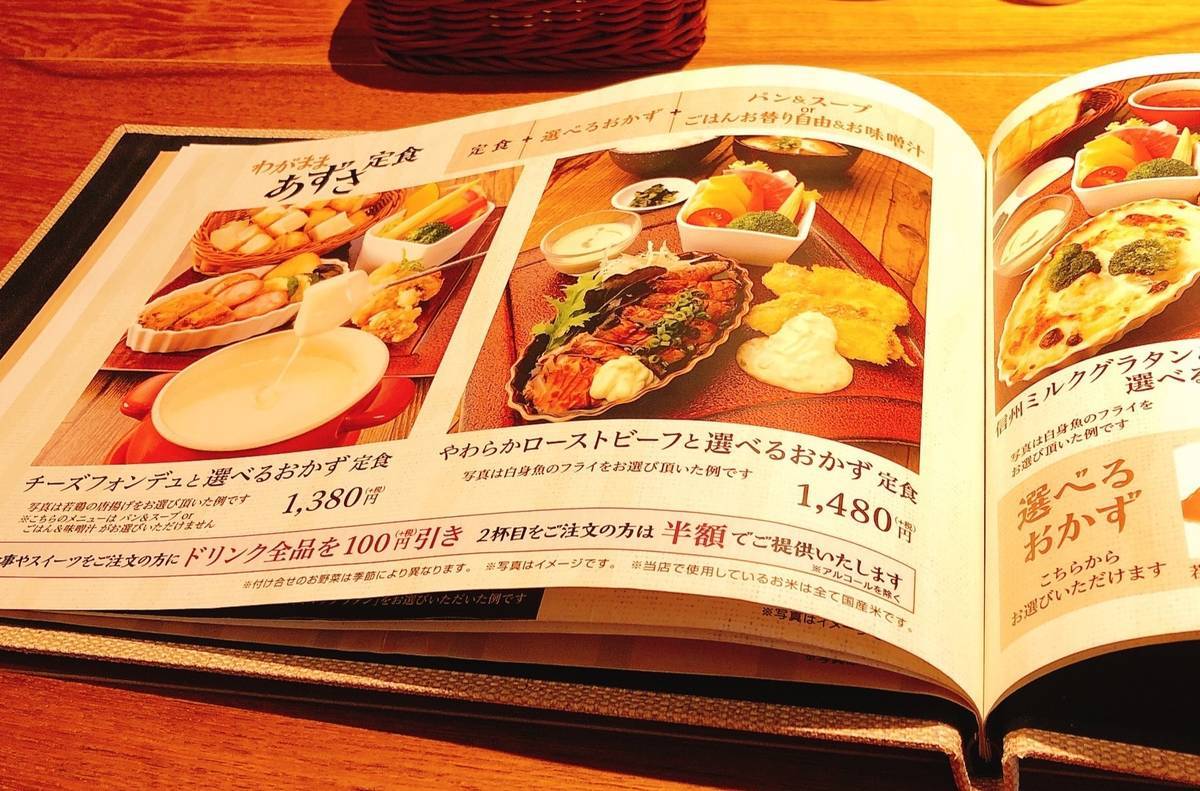 わがまま
あずさ定食
定食 + 選べるおかず +
パン&スープ
or
ごはんお替り自由&お味噌汁
チーズフォンデュと選べるおかず 定食
写真は若鶏の唐揚げをお選び頂いた例です
※こちらのメニューは パン&スープ or
ごはん&味噌汁 がお選びいただけません
1,380(+税)円
やわらかローストビーフと選べるおかず 定食
写真は白身魚のフライをお選び頂いた例です
1,480(+税)円
事やスイーツをご注文の方に ドリンク全品を100(+税)円引き 2杯目をご注文の方は 半額 でご提供いたします
※アルコールを除く
※付け合せのお野菜は季節により異なります。 ※写真はイメージです。 ※当店で使用しているお米は全て国産米です。
をお選びいただいた例です
※写真はイメージ
信州ミルクグラタン
選べる
写真は白身魚のフライを
お選び頂いた例です
選べる
おかず
こちらから
お選びいただけます